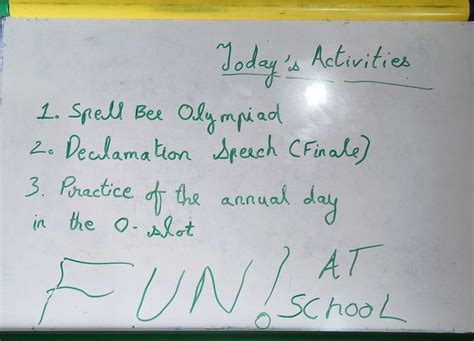 Today's Activities
1. Spell Bee Olympiad
2. Declamation Speech (Finale)
3. Practice of the annual day
in the O-slot
FUN! AT
SCHOOL